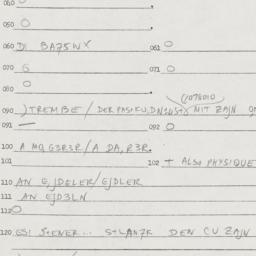 040
050 0
060 DI BA75WX 061 0
070 6 071 0
080 0
(070010)
090 ) TREMBE / DER MIT ZAJN
091 — 092 0
100 A MQ G3R3R / A DA, R3R.
101 102 + ALSO PHYSIQUE
110 AN EJDELER / EJDLER
111 AN EJD3LN
112 0
120 ES! SHENER... DEN CU ZAJN